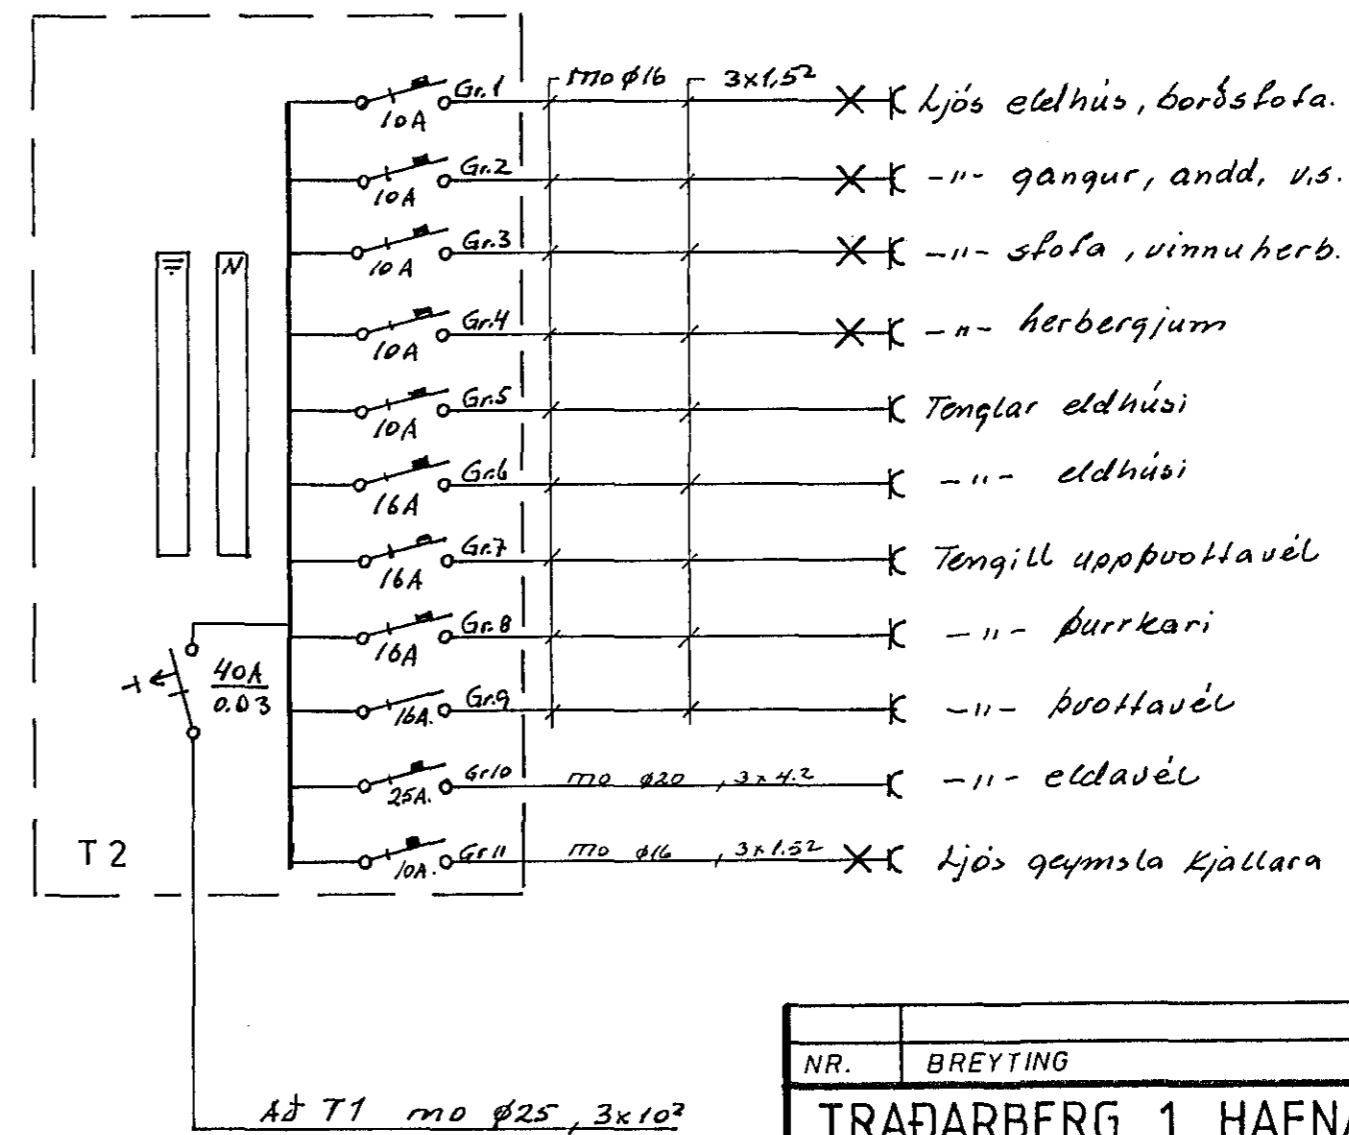 Gr.1 mo ø16 3x1,5² Ljós eldhús, borðstofa.
10A
Gr.2 -"- gangur, andd, v.s.
10A
Gr.3 -"- stofa, vinnuherb.
10A
N
Gr.4 -"- herbergjum
10A
Gr.5 Tenglar eldhúsi
10A
Gr.6 -"- eldhúsi
16A
Gr.7 Tengill uppþvottavél
16A
Gr.8 -"- þurrkari
16A
40A
0.03
Gr.9 -"- þvottavél
16A.
Gr10 mo ø20, 3x4.² -"- eldavél
25A.
T2
Gr11 mo ø16, 3x1.5² Ljós geymsla kjallara
10A.
NR. BREYTING
Að T1 mo ø25, 3x10²
TRAÐARBERG 1 HAFNA